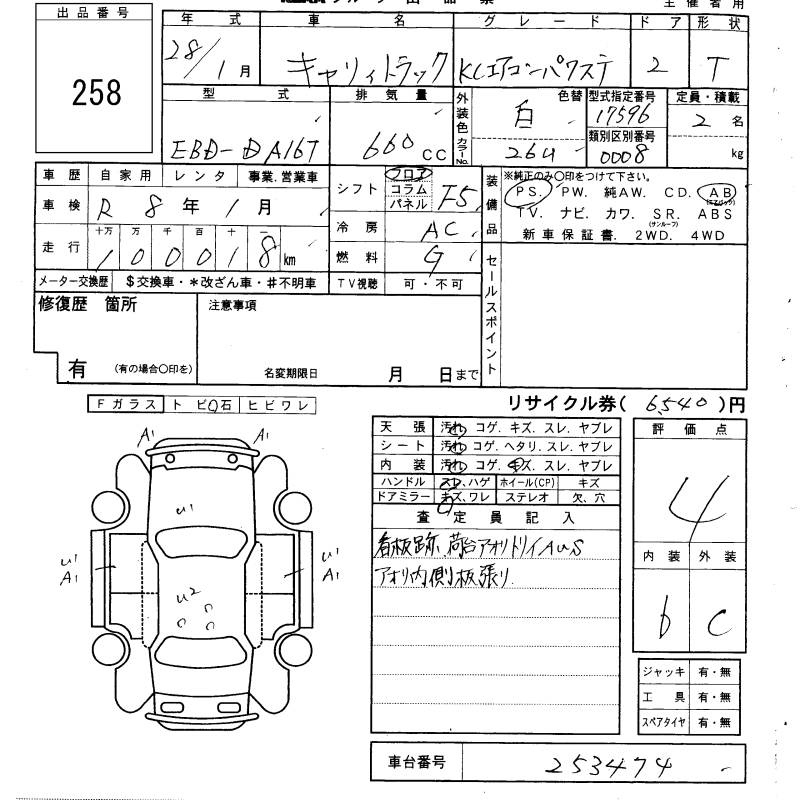 主催者用
出品番号
258
年式 車名 グレード ドア 形状
28/1月 キャリィトラック KCエアコンパワステ 2 T
型式 排気量 外装色 カラーNo. 色替 型式指定番号 定員・積載
EBD-DA16T 660cc 白 26U 17596 2名
類別区別番号
0008 kg
車歴 自家用 レンタ 事業.営業車
シフト フロア コラム パネル F5
車検 R 8年 1月
冷房 AC
走行 十万 万 千 百 十 一
100018km
燃料 G
メーター交換歴 $交換車・*改ざん車・#不明車
TV視聴 可・不可
装備品 ※純正のみ〇印をつけて下さい。
PS. PW. 純AW. CD. AB(エアバッグ)
TV. ナビ. カワ. SR.(サンルーフ) ABS
新車保証書. 2WD. 4WD
セールスポイント
修復歴 箇所
有 (有の場合〇印を)
注意事項
名変期限日 月 日まで
リサイクル券( 6540 )円
Fガラス トビ石 ヒビワレ
天張 汚れ コゲ. キズ. スレ. ヤブレ
シート 汚れ コゲ. ヘタリ. スレ. ヤブレ
内装 汚れ コゲ. キズ. スレ. ヤブレ
ハンドル スレ、ハゲ ホイール(CP) キズ
ドアミラー キズ、ワレ ステレオ 欠、穴
査定員記入
看板跡、荷台アオリトリイAUS
アオリ内側板張り
評価点
4
内装 外装
b C
ジャッキ 有・無
工具 有・無
スペアタイヤ 有・無
A1 A1
U1
U1 A1
U1 A1
U2
車台番号 253474